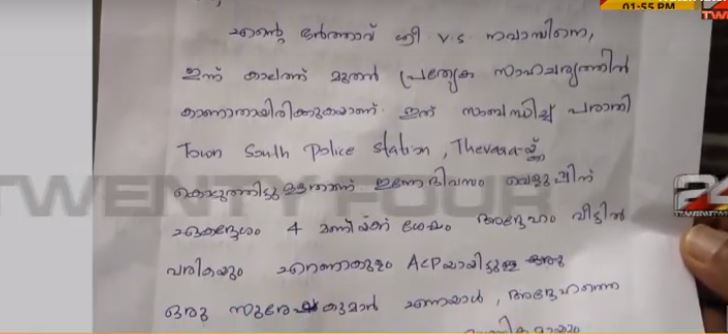 01:55 PM
24
TWENTY FOUR
എന്റെ ഭർത്താവ് ശ്രീ V.S നവാസിനെ,
ഇന്ന് കാലത്ത് മുതൽ പ്രത്യേക സാഹചര്യത്തിൽ
കാണാതായിരിക്കുകയാണ്. ഇത് സംബന്ധിച്ച് പരാതി
Town South Police Station, Thevara-യ്ക്ക്
കൊടുത്തിട്ടുള്ളതാണ് ഇന്നേദിവസം വെളുപ്പിന്
ഏകദേശം 4 മണിയ്ക്ക് ശേഷം അദ്ദേഹം വീട്ടിൽ
വരികയും എറണാകുളം ACPയായിട്ടുള്ള
ഒരു സുരേഷ്കുമാർ എന്നയാൾ, അദ്ദേഹത്തെ